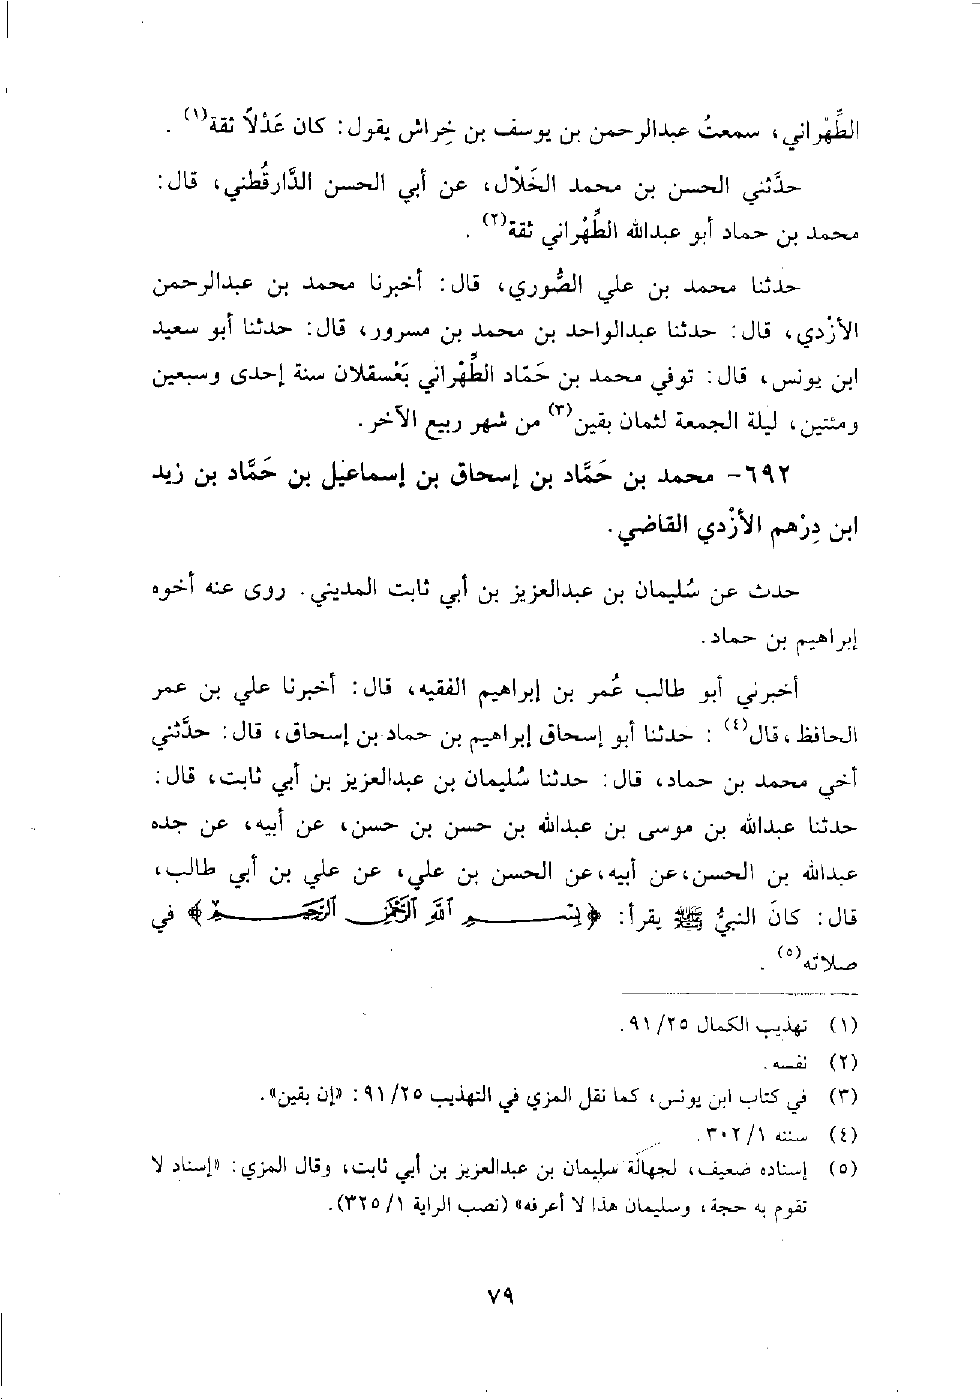 الطِّهْراني، سمعتُ عبدالرحمن بن يوسف بن خِراش يقول: كان عَدْلاً ثقة(١) .
حدَّثني الحسن بن محمد الخَلَّال، عن أبي الحسن الدَّارقُطني، قال:
محمد بن حماد أبو عبدالله الطِّهْراني ثقة(٢) .
حدثنا محمد بن علي الصُّوري، قال: أخبرنا محمد بن عبدالرحمن
الأزْدي، قال: حدثنا عبدالواحد بن محمد بن مسرور، قال: حدثنا أبو سعيد
ابن يونس، قال: توفي محمد بن حَمَّاد الطِّهْراني بَعْسقلان سنة إحدى وسبعين
ومئتين، ليلة الجمعة لثمان بقين(٣) من شهر ربيع الآخر.
٦٩٢- محمد بن حَمَّاد بن إسحاق بن إسماعيل بن حَمَّاد بن زيد
ابن دِرْهم الأزْدي القاضي.
حدث عن سُليمان بن عبدالعزيز بن أبي ثابت المديني. روى عنه أخوه
إبراهيم بن حماد.
أخبرني أبو طالب عُمر بن إبراهيم الفقيه، قال: أخبرنا علي بن عمر
الحافظ، قال(٤) : حدثنا أبو إسحاق إبراهيم بن حماد بن إسحاق، قال: حدَّثني
أخي محمد بن حماد، قال: حدثنا سُليمان بن عبدالعزيز بن أبي ثابت، قال:
حدثنا عبدالله بن موسى بن عبدالله بن حسن بن حسن، عن أبيه، عن جده
عبدالله بن الحسن، عن أبيه، عن الحسن بن علي، عن علي بن أبي طالب،
قال: كانَ النبيُّ ﷺ يقرأ: ﴿بِسْمِ اللَّهِ الرَّحْمَٰنِ الرَّحِيمِ﴾ في
صلاته(٥) .
(١) تهذيب الكمال ٢٥/ ٩١.
(٢) نفسه.
(٣) في كتاب ابن يونس، كما نقل المزي في التهذيب ٢٥/ ٩١: «إن بقين».
(٤) سننه ١/ ٣٠٢.
(٥) إسناده ضعيف، لجهالة سليمان بن عبدالعزيز بن أبي ثابت، وقال المزي: «إسناد لا
تقوم به حجة، وسليمان هذا لا أعرفه» (نصب الراية ١/ ٣٢٥).
٧٩